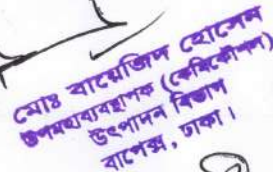 মোঃ বায়েজিদ হোসেন
উপমহাব্যবস্থাপক (কেমিকৌশল)
উৎপাদন বিভাগ
বাপেক্স, ঢাকা।